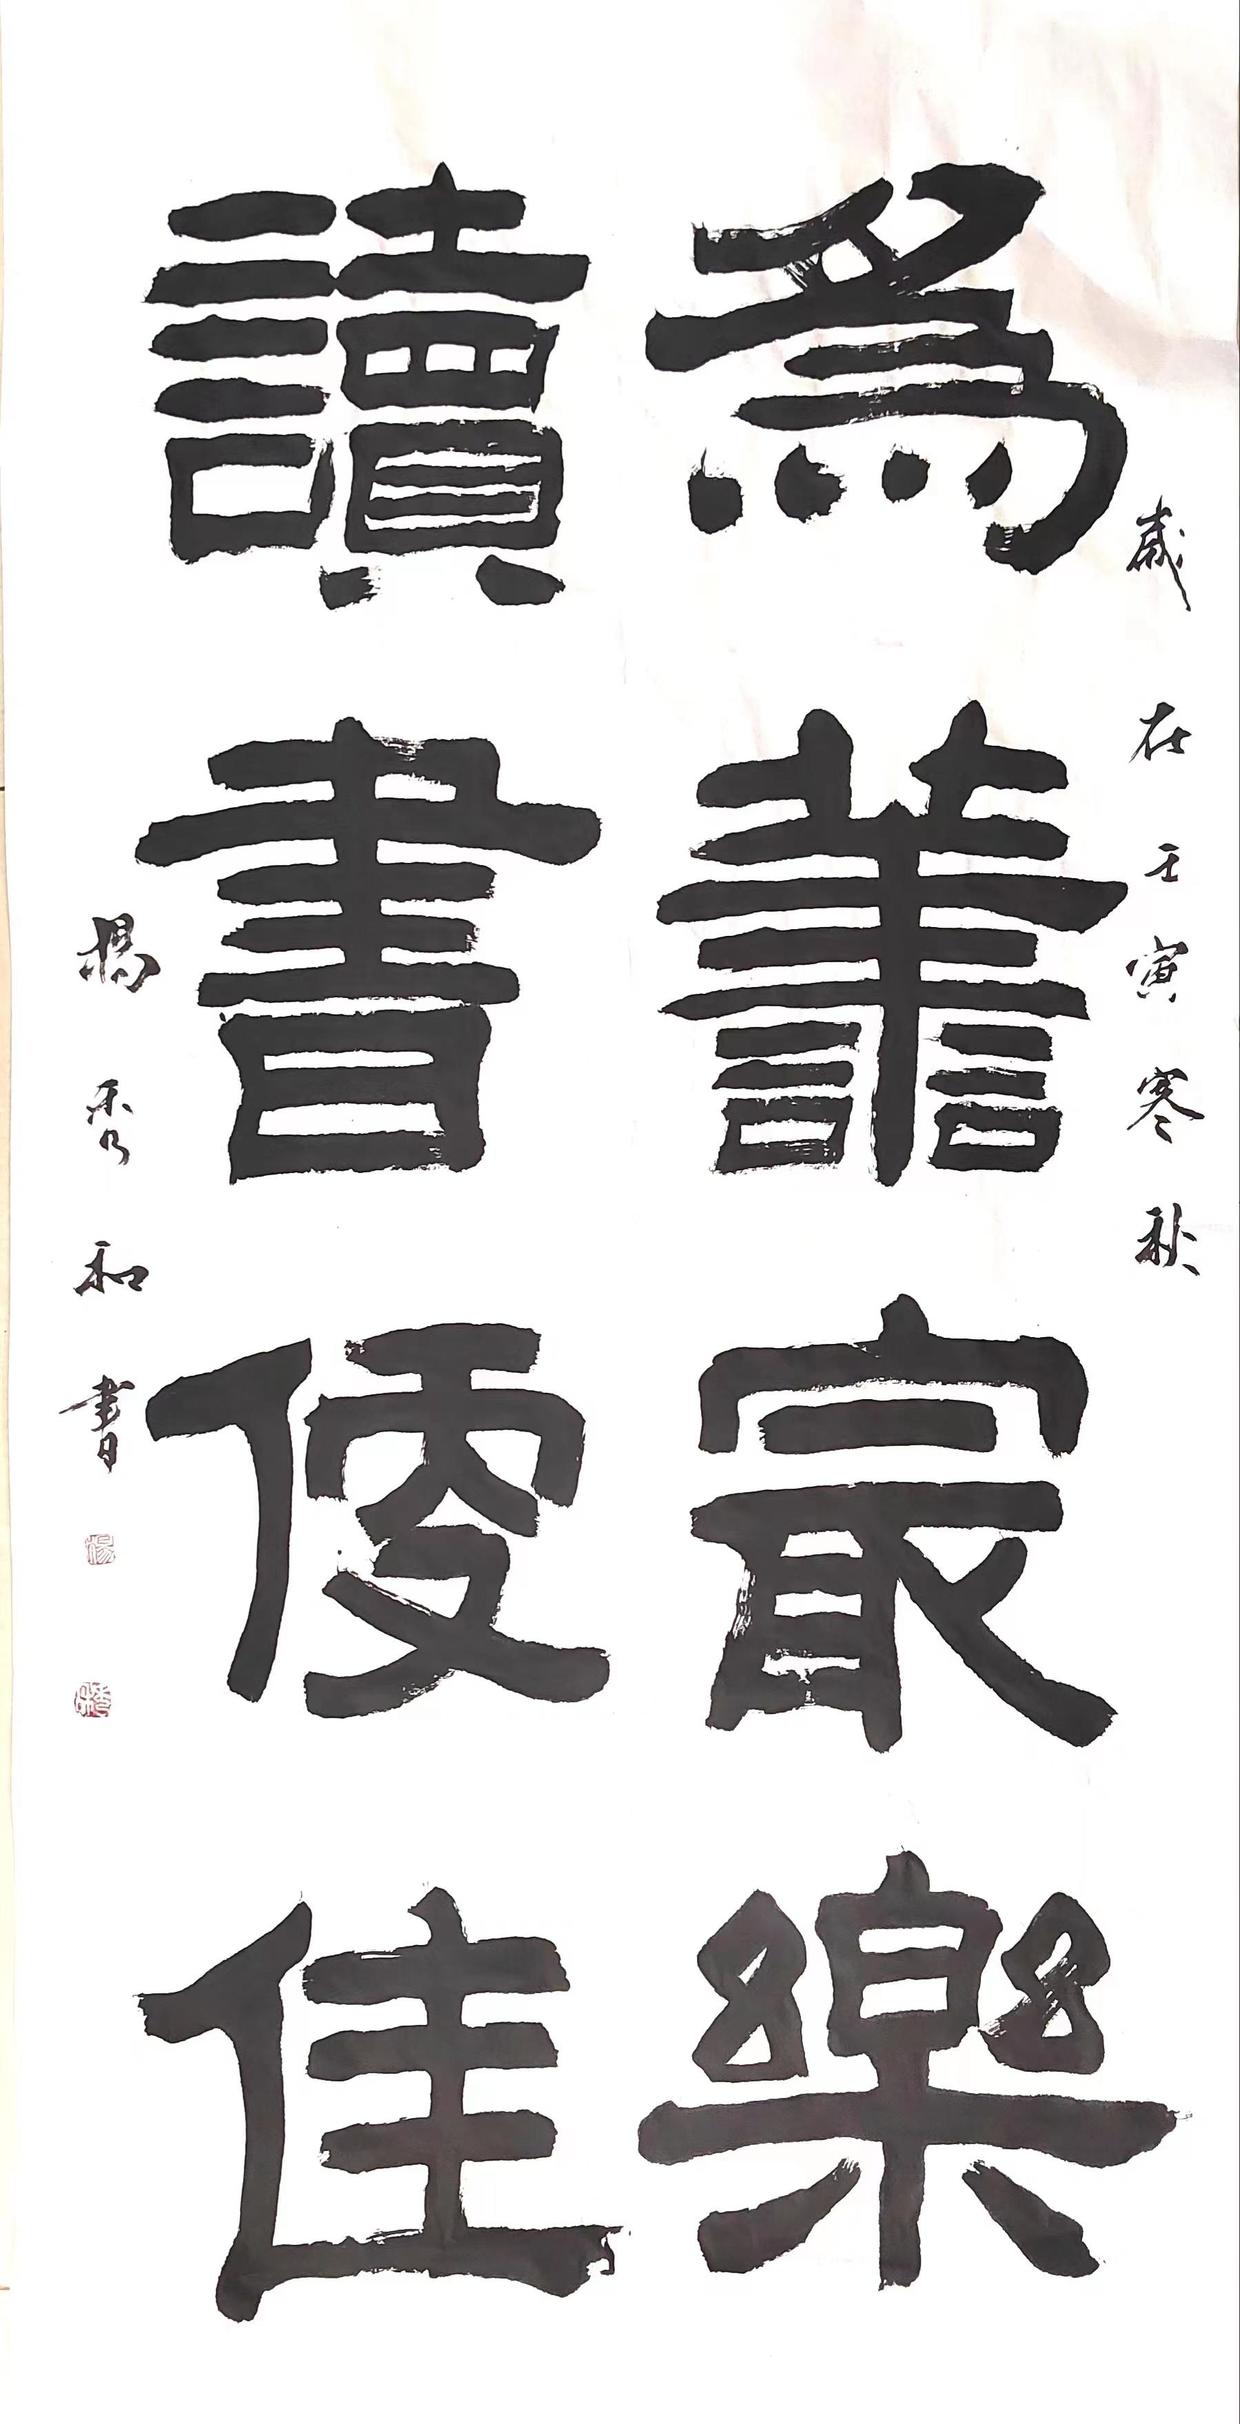 歲在壬寅寒秋
為譱冣樂
讀書便佳
楊秀和書
楊